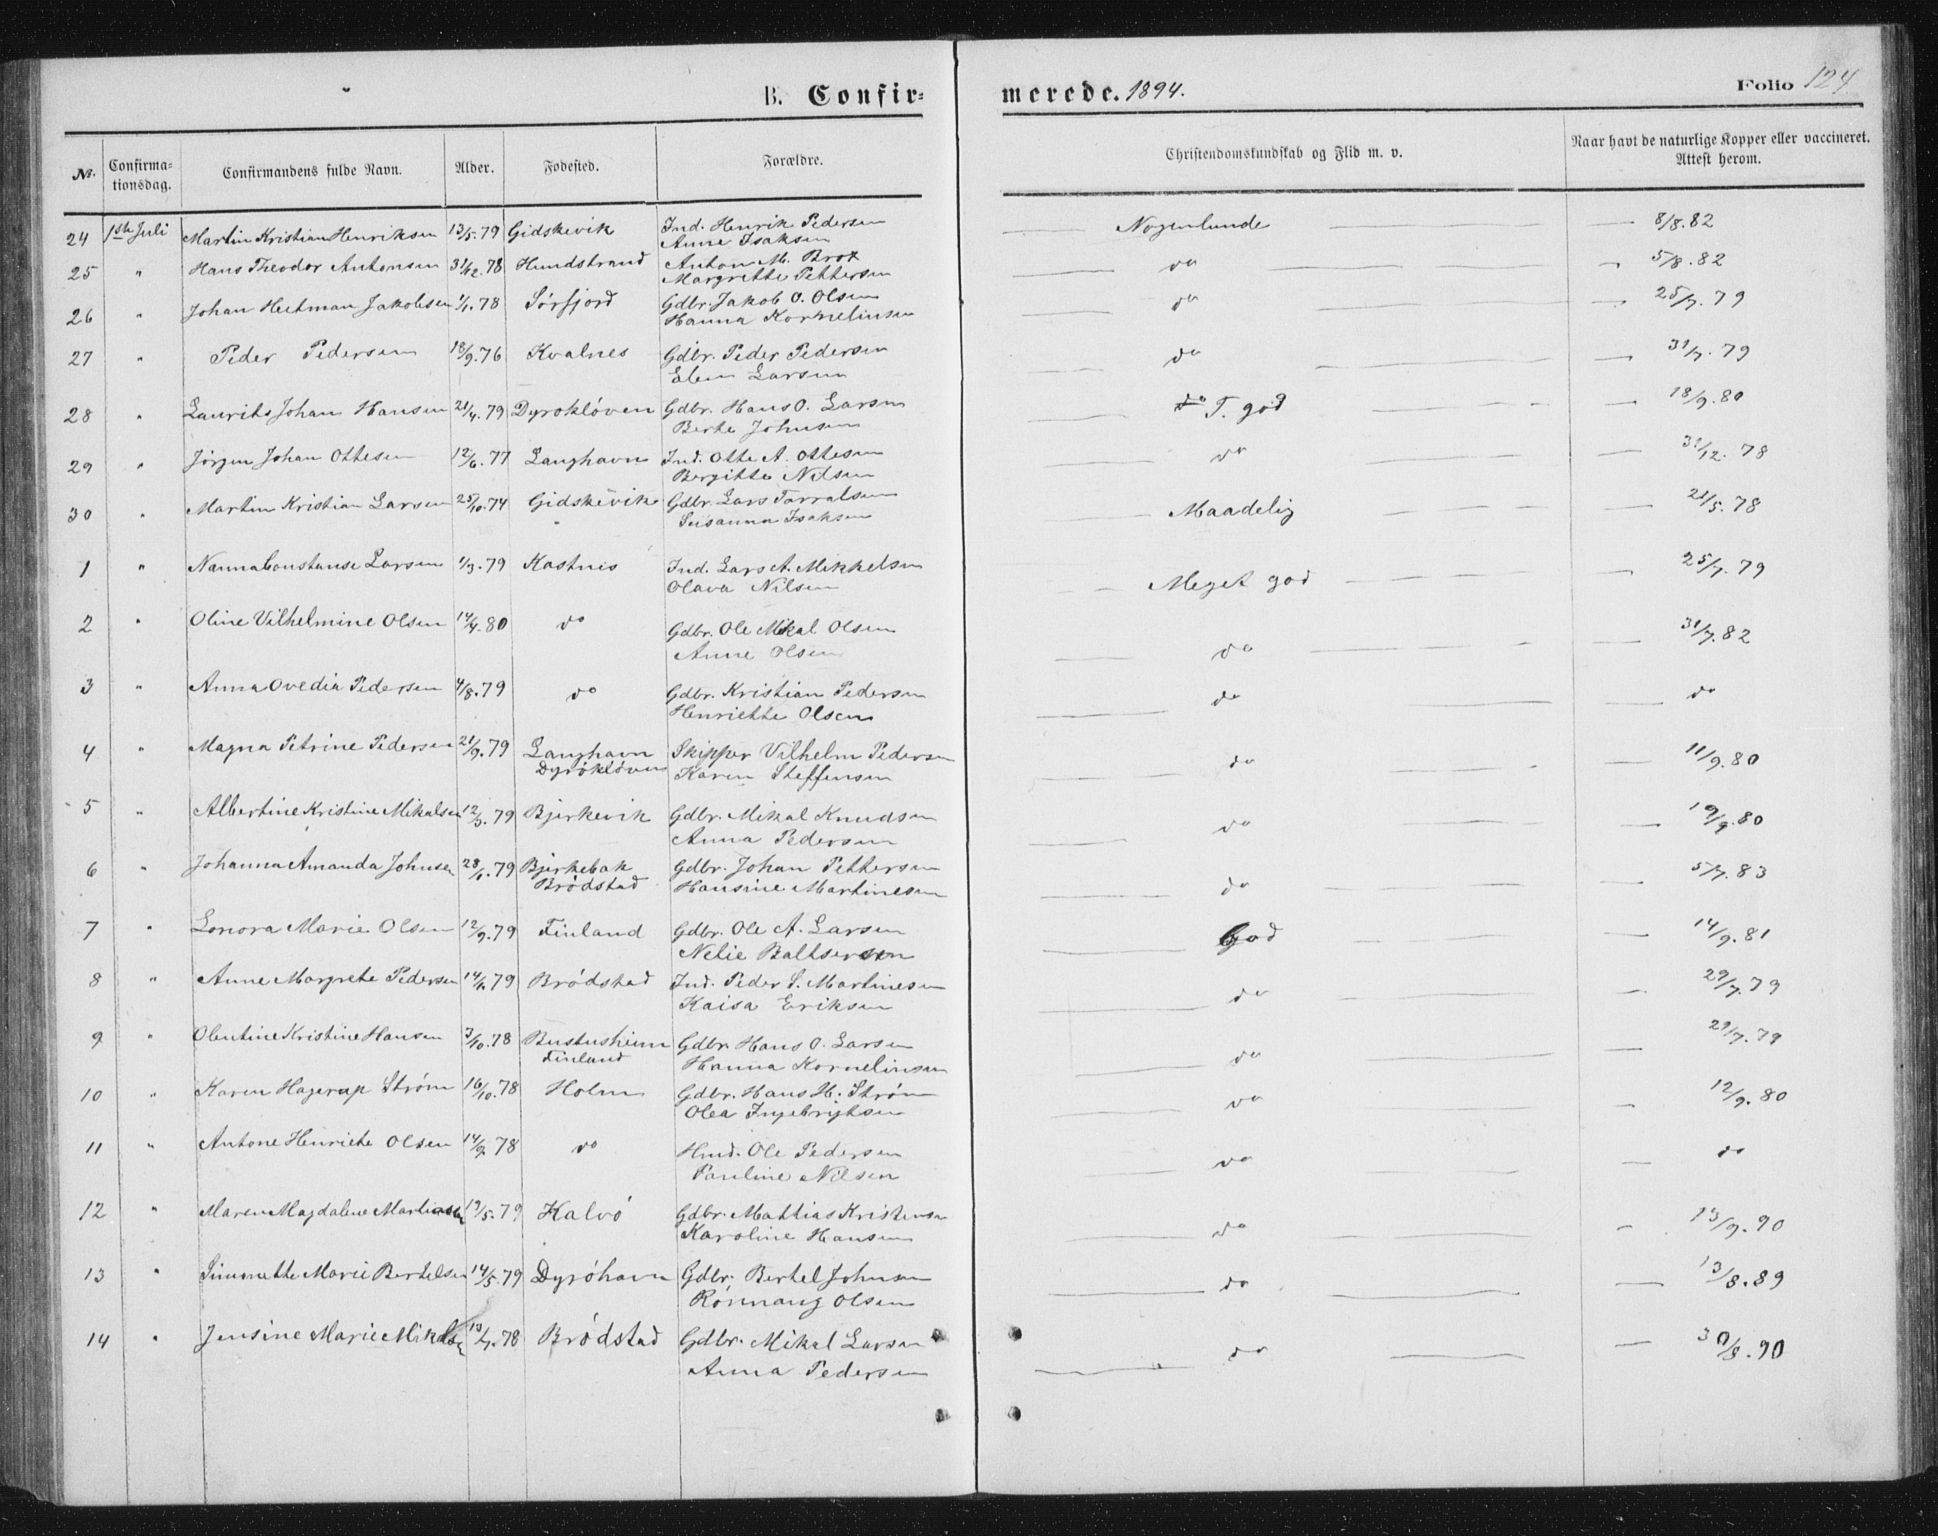 B. Confir-
merede. 1894.
Folio 124
No. Confirma-tionsdag. Confirmandens fulde Navn. Alder. Fødested. Forældre. Christendomskundskab og Flid m. v. Naar havt de naturlige Kopper eller vaccineret. Attest herom.
24 1ste Juli Martin Kristian Henriksen 13/5.79 Gidskevik Ind. Henrik Pedersen Nogenlunde 8/8.82
Anne Isaksen
25 " Hans Theodor Antonsen 31/12.78 Hundstrand Anton M. Brox do 5/8.82
Margrethe Pettersen
26 " Johan Heitman Jakobsen 1/1.78 Sørfjord Gdbr. Jakob O. Olsen do 25/7.79
Hanna Kornelinsen
27 " Peder Pedersen 18/9.76 Kvalnes Gdbr. Peder Pedersen do 31/7.79
Elen Larsen
28 " Laurits Johan Hansen 21/4.79 Dyrøkløven Gdbr. Hans O. Larsen do T. god 18/9.80
Berte Johnsen
29 " Jørgen Johan Ottesen 12/6.77 Langhavn Ind. Otte A. Ottesen do 31/12.78
Bergitte Nilsen
30 " Martin Kristian Larsen 25/10.74 Gidskevik Gdbr. Lars Tarralsen Maadelig 21/5.78
Susanna Isaksen
1 " Nanna Constanse Larsen 1/3.79 Kastnes Ind. Lars A. Mikkelsen Meget god 25/7.79
Olava Nilsen
2 " Oline Vilhelmine Olsen 14/4.80 do Gdbr. Ole Mikal Olsen do 31/7.82
Anne Olsen
3 " Anna Ovedia Pedersen 4/8.79 do Gdbr. Kristian Pedersen do do
Henriette Olsen
4 " Magna Petrine Pedersen 21/9.79 Langhavn Skipper Vilhelm Pedersen do 11/9.80
Dyrøkløven Karen Steffensen
5 " Albertine Kristine Mikalsen 12/3.79 Bjerkevik Gdbr. Mikal Knudsen do 19/9.80
Anna Pedersen
6 " Johanna Amanda Johnsen 28/1.79 Bjerkebak Gdbr. Johan Pettersen do 5/7.83
Brødstad Hansine Martinesen
7 " Lonora Marie Olsen 12/9.79 Finland Gdbr. Ole A. Larsen God 14/9.81
Nelie Baltsersen
8 " Anne Margrete Pedersen 14/1.79 Brødstad Ind. Peder S. Martinesen do 29/7.79
Kaisa Eriksen
9 " Olentine Kristine Hansen 3/10.78 Bustusheim Gdbr. Hans O. Larsen do 29/7.79
Finland Hanna Kornelinsen
10 " Karen Hagerup Strøm 16/10.78 Holm Gdbr. Hans H. Strøm do 12/9.80
Olea Ingebrigtsen
11 " Antone Henriette Olsen 14/9.78 do Hmd. Ole Pedersen do do
Pauline Nilsen
12 " Maren Magdalene Mathiasen 19/5.79 Kalvø Gdbr. Mathias Kristensen do 13/9.90
Karoline Hansen
13 " Simonette Marie Bertelsen 14/5.79 Dyrøhavn Gdbr. Bertel Johnsen do 13/8.89
Rønnaug Olsen
14 " Jensine Marie Mikalsen 13/7.78 Brødstad Gdbr. Mikal Larsen do 30/8.90
Anna Pedersen